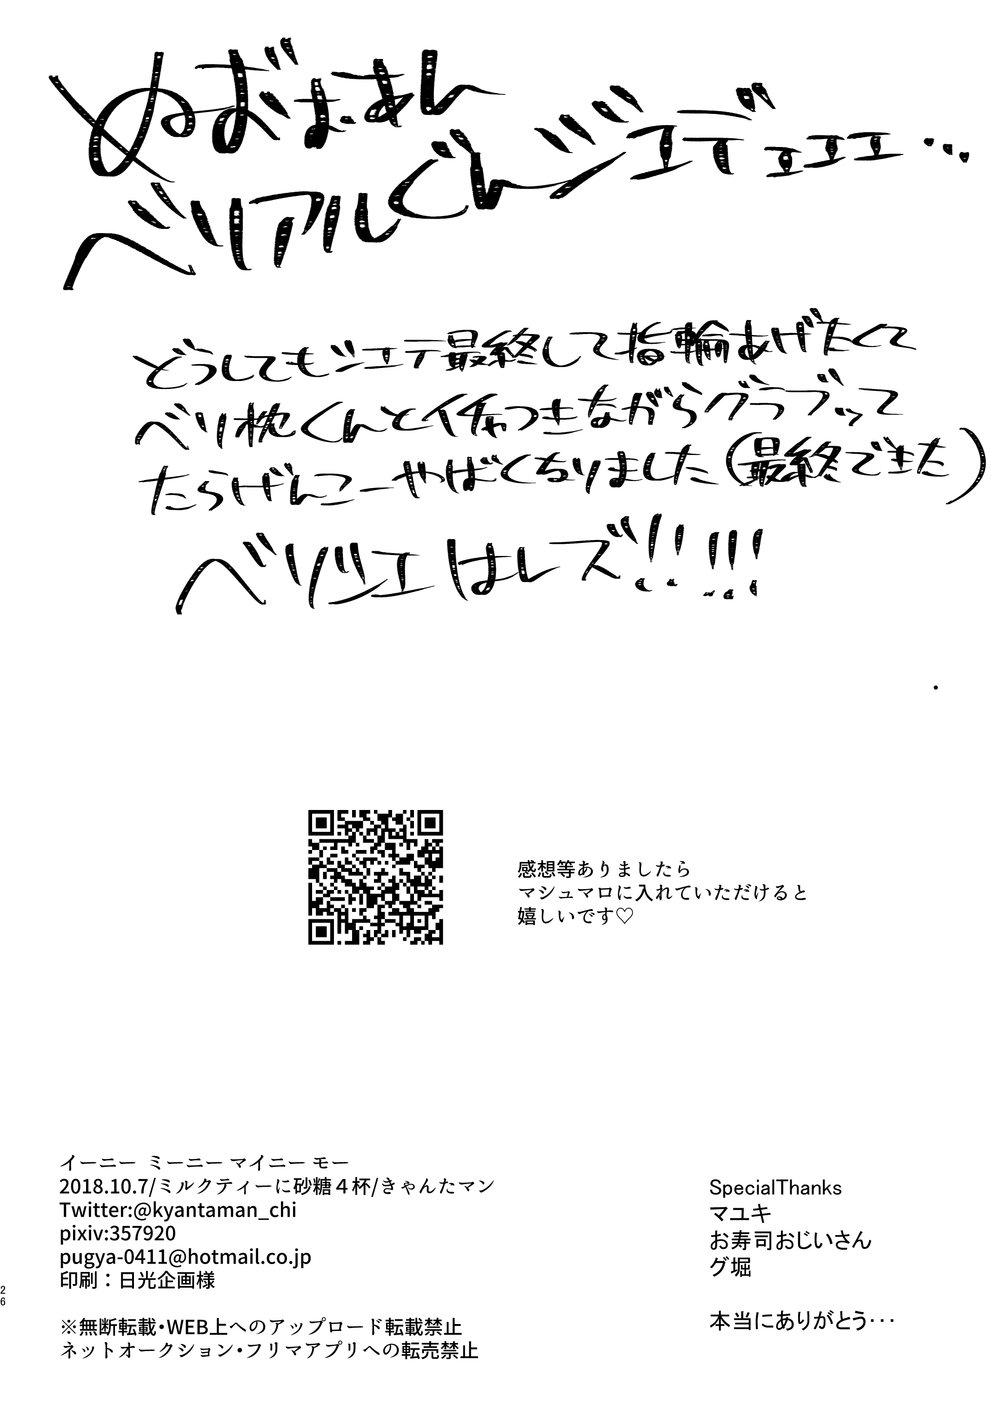 ぬ゛お゛ぉ゛あん
ベリアルぐんジエデェエエ…
どうしてもジエテ最終して指輪あげたくて
ベリ枕くんとイチャつきながらグラブッて
たらげんこーやばくなりました(最終できた)
ベリジエはレズ!!!!!
感想等ありましたら
マシュマロに入れていただけると
嬉しいです♡
イーニー ミーニー マイニー モー
2018.10.7/ミルクティーに砂糖４杯/きゃんたマン
Twitter:@kyantaman_chi
pixiv:357920
pugya-0411@hotmail.co.jp
印刷：日光企画様
※無断転載・WEB上へのアップロード転載禁止
ネットオークション・フリマアプリへの転売禁止
SpecialThanks
マユキ
お寿司おじいさん
グ堀
本当にありがとう･･･
26